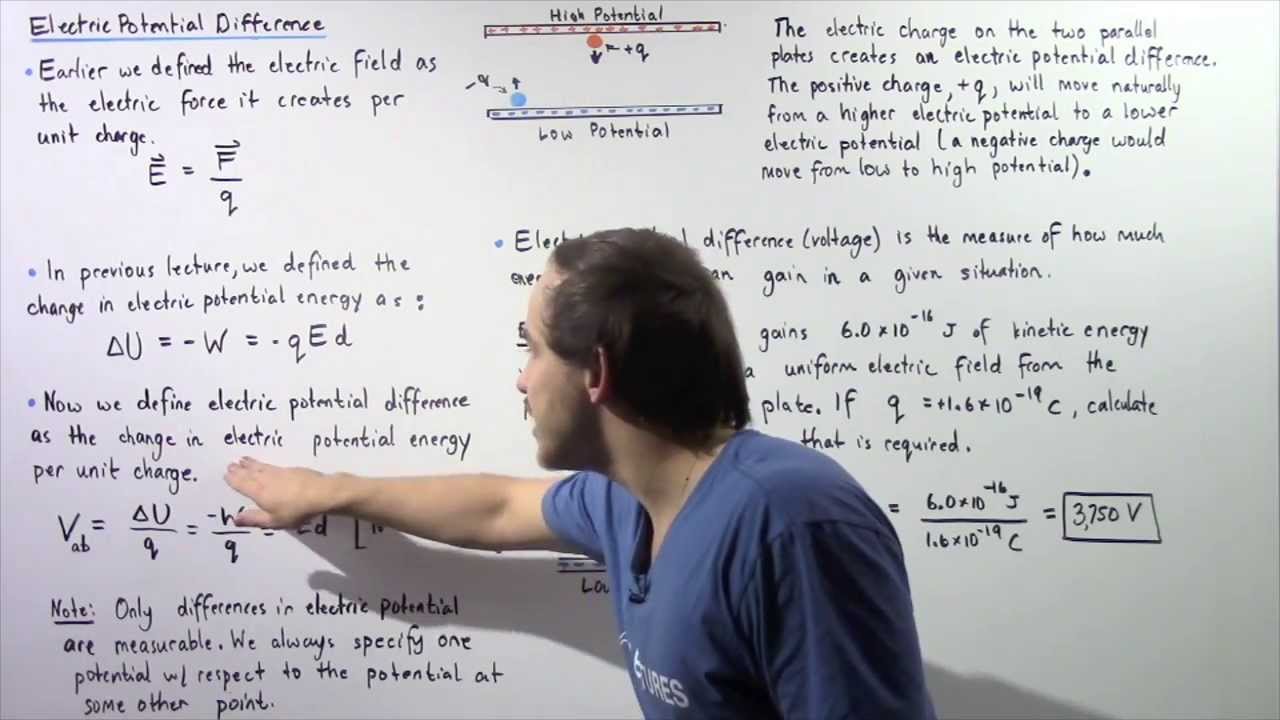 Electric Potential Difference
• Earlier we defined the electric field as
the electric force it creates per
unit charge.
E = F
q
• In previous lecture, we defined the
change in electric potential energy as:
ΔU = -W = -qEd
• Now we define electric potential difference
as the change in electric potential energy
per unit charge.
Vab = ΔU/q = -W/q =
Note: Only differences in electric potential
are measurable. We always specify one
potential w/ respect to the potential at
some other point.
High Potential
+q
-q
Low Potential
The electric charge on the two parallel
plates creates an electric potential difference.
The positive charge, +q, will move naturally
from a higher electric potential to a lower
electric potential (a negative charge would
move from low to high potential).
• difference (voltage) is the measure of how much
gain in a given situation.
gains 6.0×10⁻¹⁶ J of kinetic energy
a uniform electric field from the
plate. If q = +1.6×10⁻¹⁹ C, calculate
that is required.
= 6.0×10⁻¹⁶ J / 1.6×10⁻¹⁹ C = 3,750 V
TURES